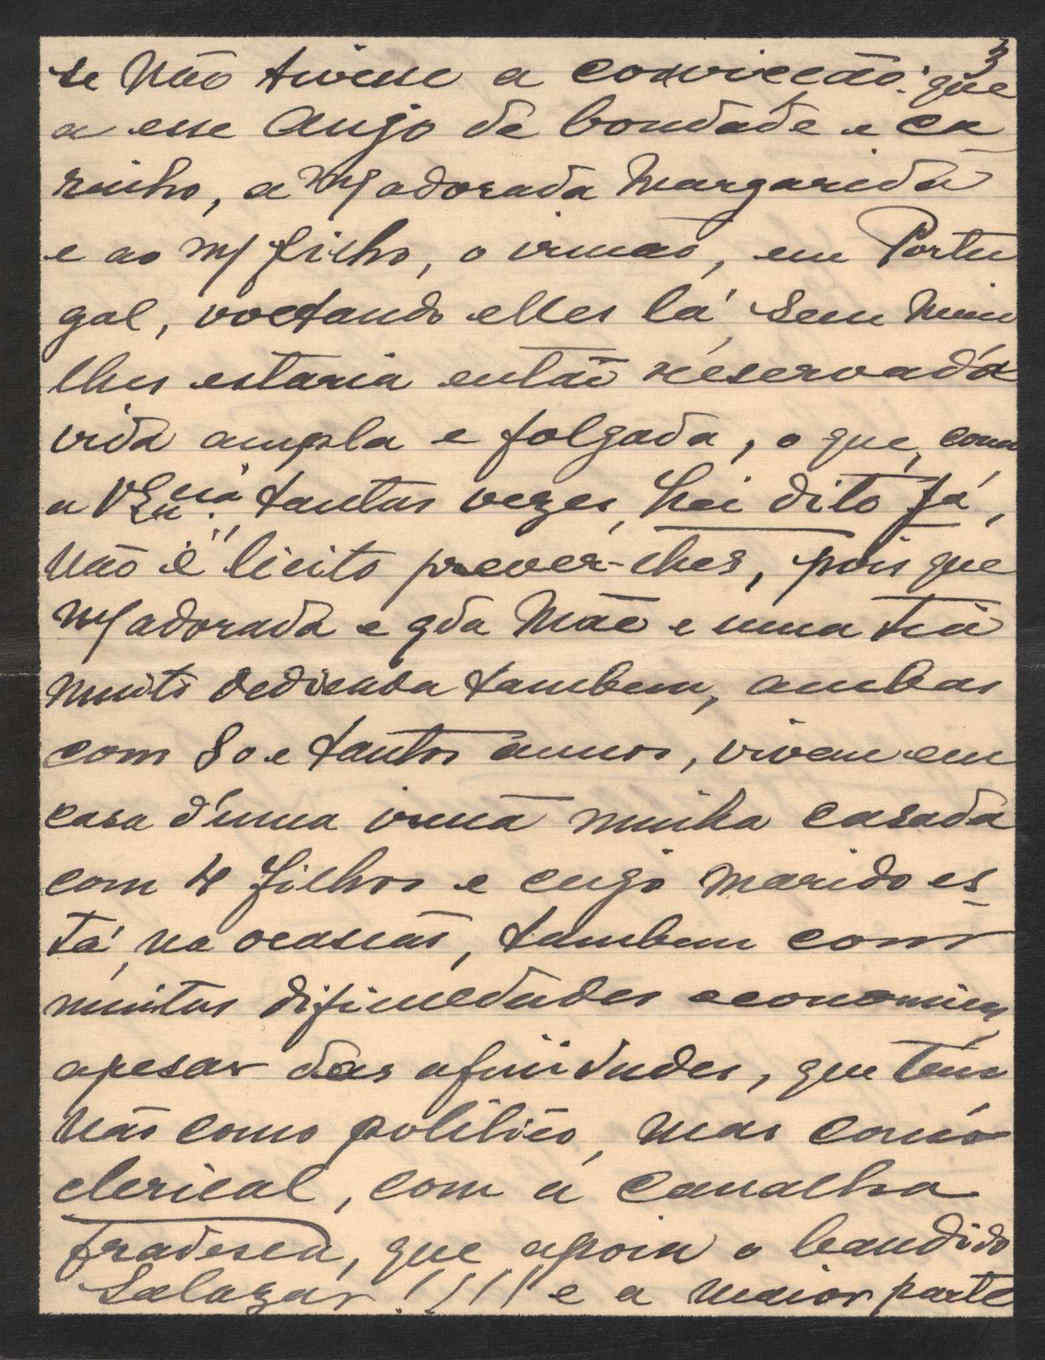 3
se não tivesse a convicção: que
a esse Anjo de bondade e ca
rinho, a m/ adorada Margarida
e ao m/ filho, o irmão, em Portu
gal, voltando elles lá sem mim
lhes estaria então reservada
vida ampla e folgada, o que, como
a V. Exª tantas vezes, hei dito já,
não é licito prever-lhes, pois que
m/ adorada e qda Mãe e uma tia
muito dedicada tambem, ambas
com 80 e tantos annos, vivem em
casa d'uma irmã minha casada
com 4 filhos e cujo marido es
tá, na ocasião, tambem com
muitas dificuldades economicas,
apesar das afinidades, que tem
não como politico, mas como
clerical, com a canalha
fradesca, que apoia o bandido
Salazar!!!! e a maior parte